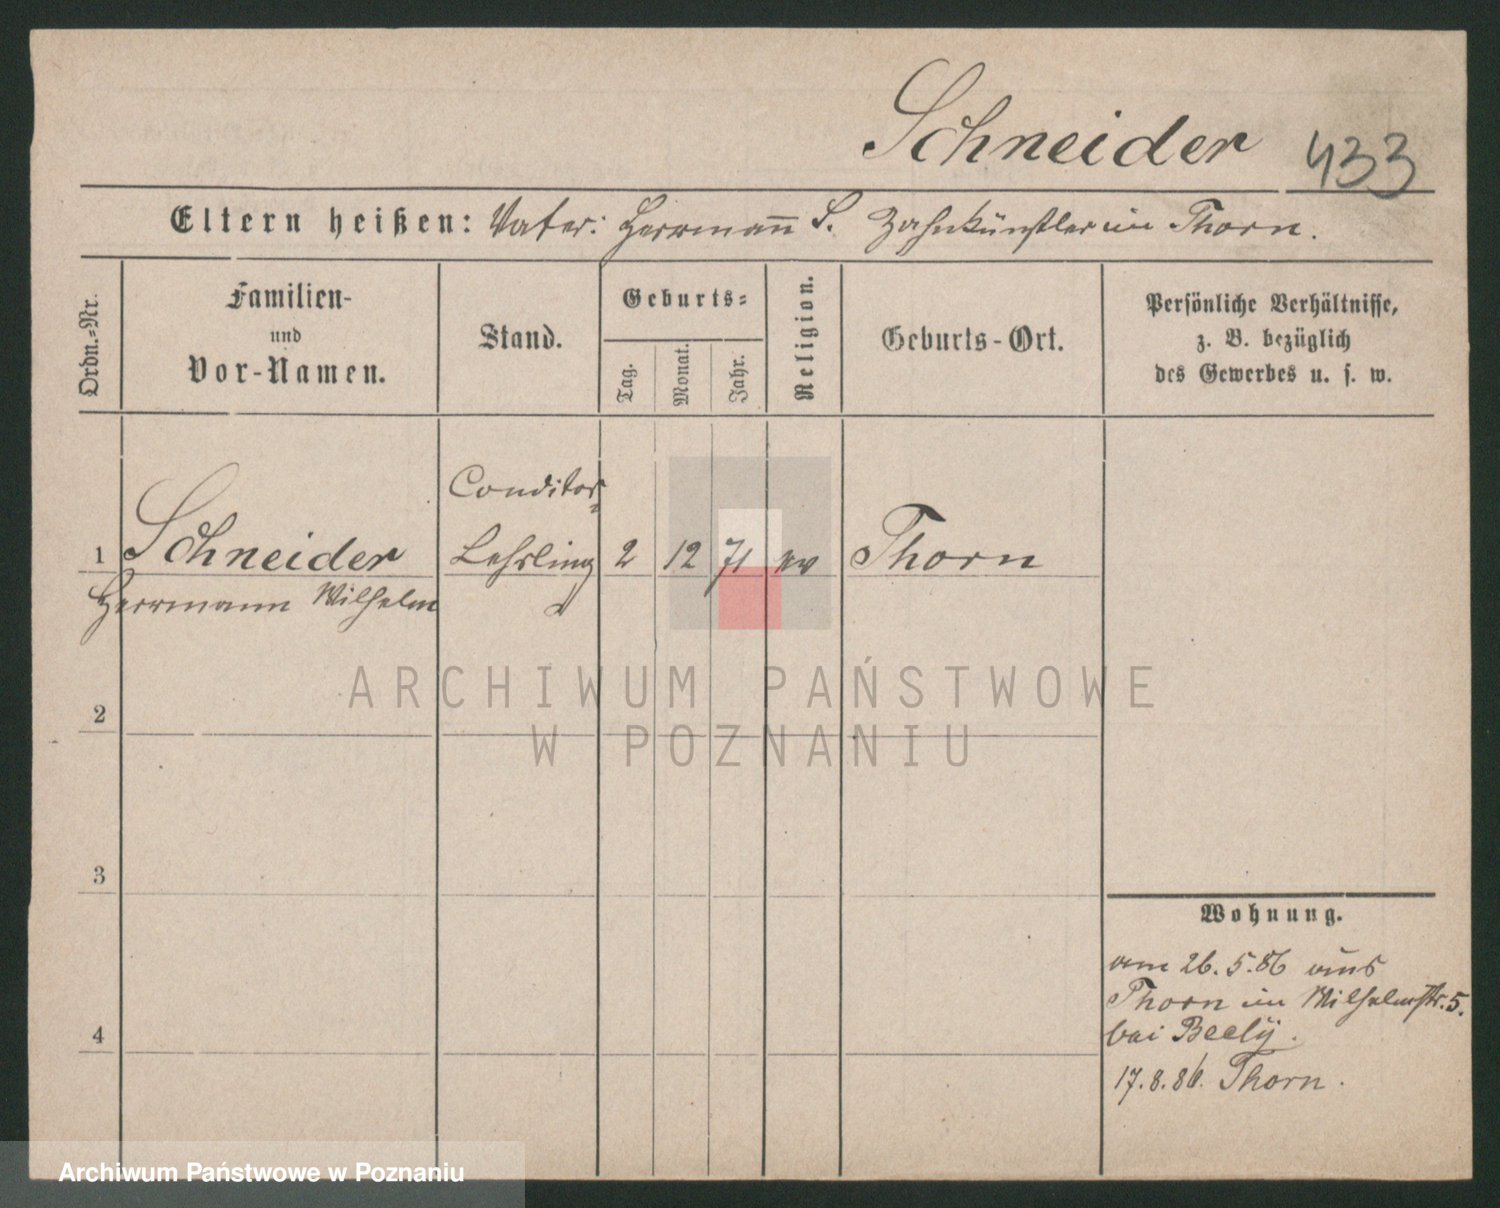 Schneider 433
Eltern heißen: Vater: Herrmann S. Zahnkünstler in Thorn.
Ordn.=Nr.
Familien-
und
Vor-Namen.
Stand.
Geburts=
Tag.
Monat.
Jahr.
Religion.
Geburts-Ort.
Persönliche Verhältnisse,
z. B. bezüglich
des Gewerbes u. s. w.
Conditor=
1 Schneider Lehrling 2 12 71 ev Thorn
Herrmann Wilhelm
ARCHIWUM PAŃSTWOWE
W POZNANIU
2
3
Wohnung.
am 26.5.86 aus
Thorn in Wilhelmstr. 5.
bei Beely.
4
17.8.86. Thorn.
Archiwum Państwowe w Poznaniu